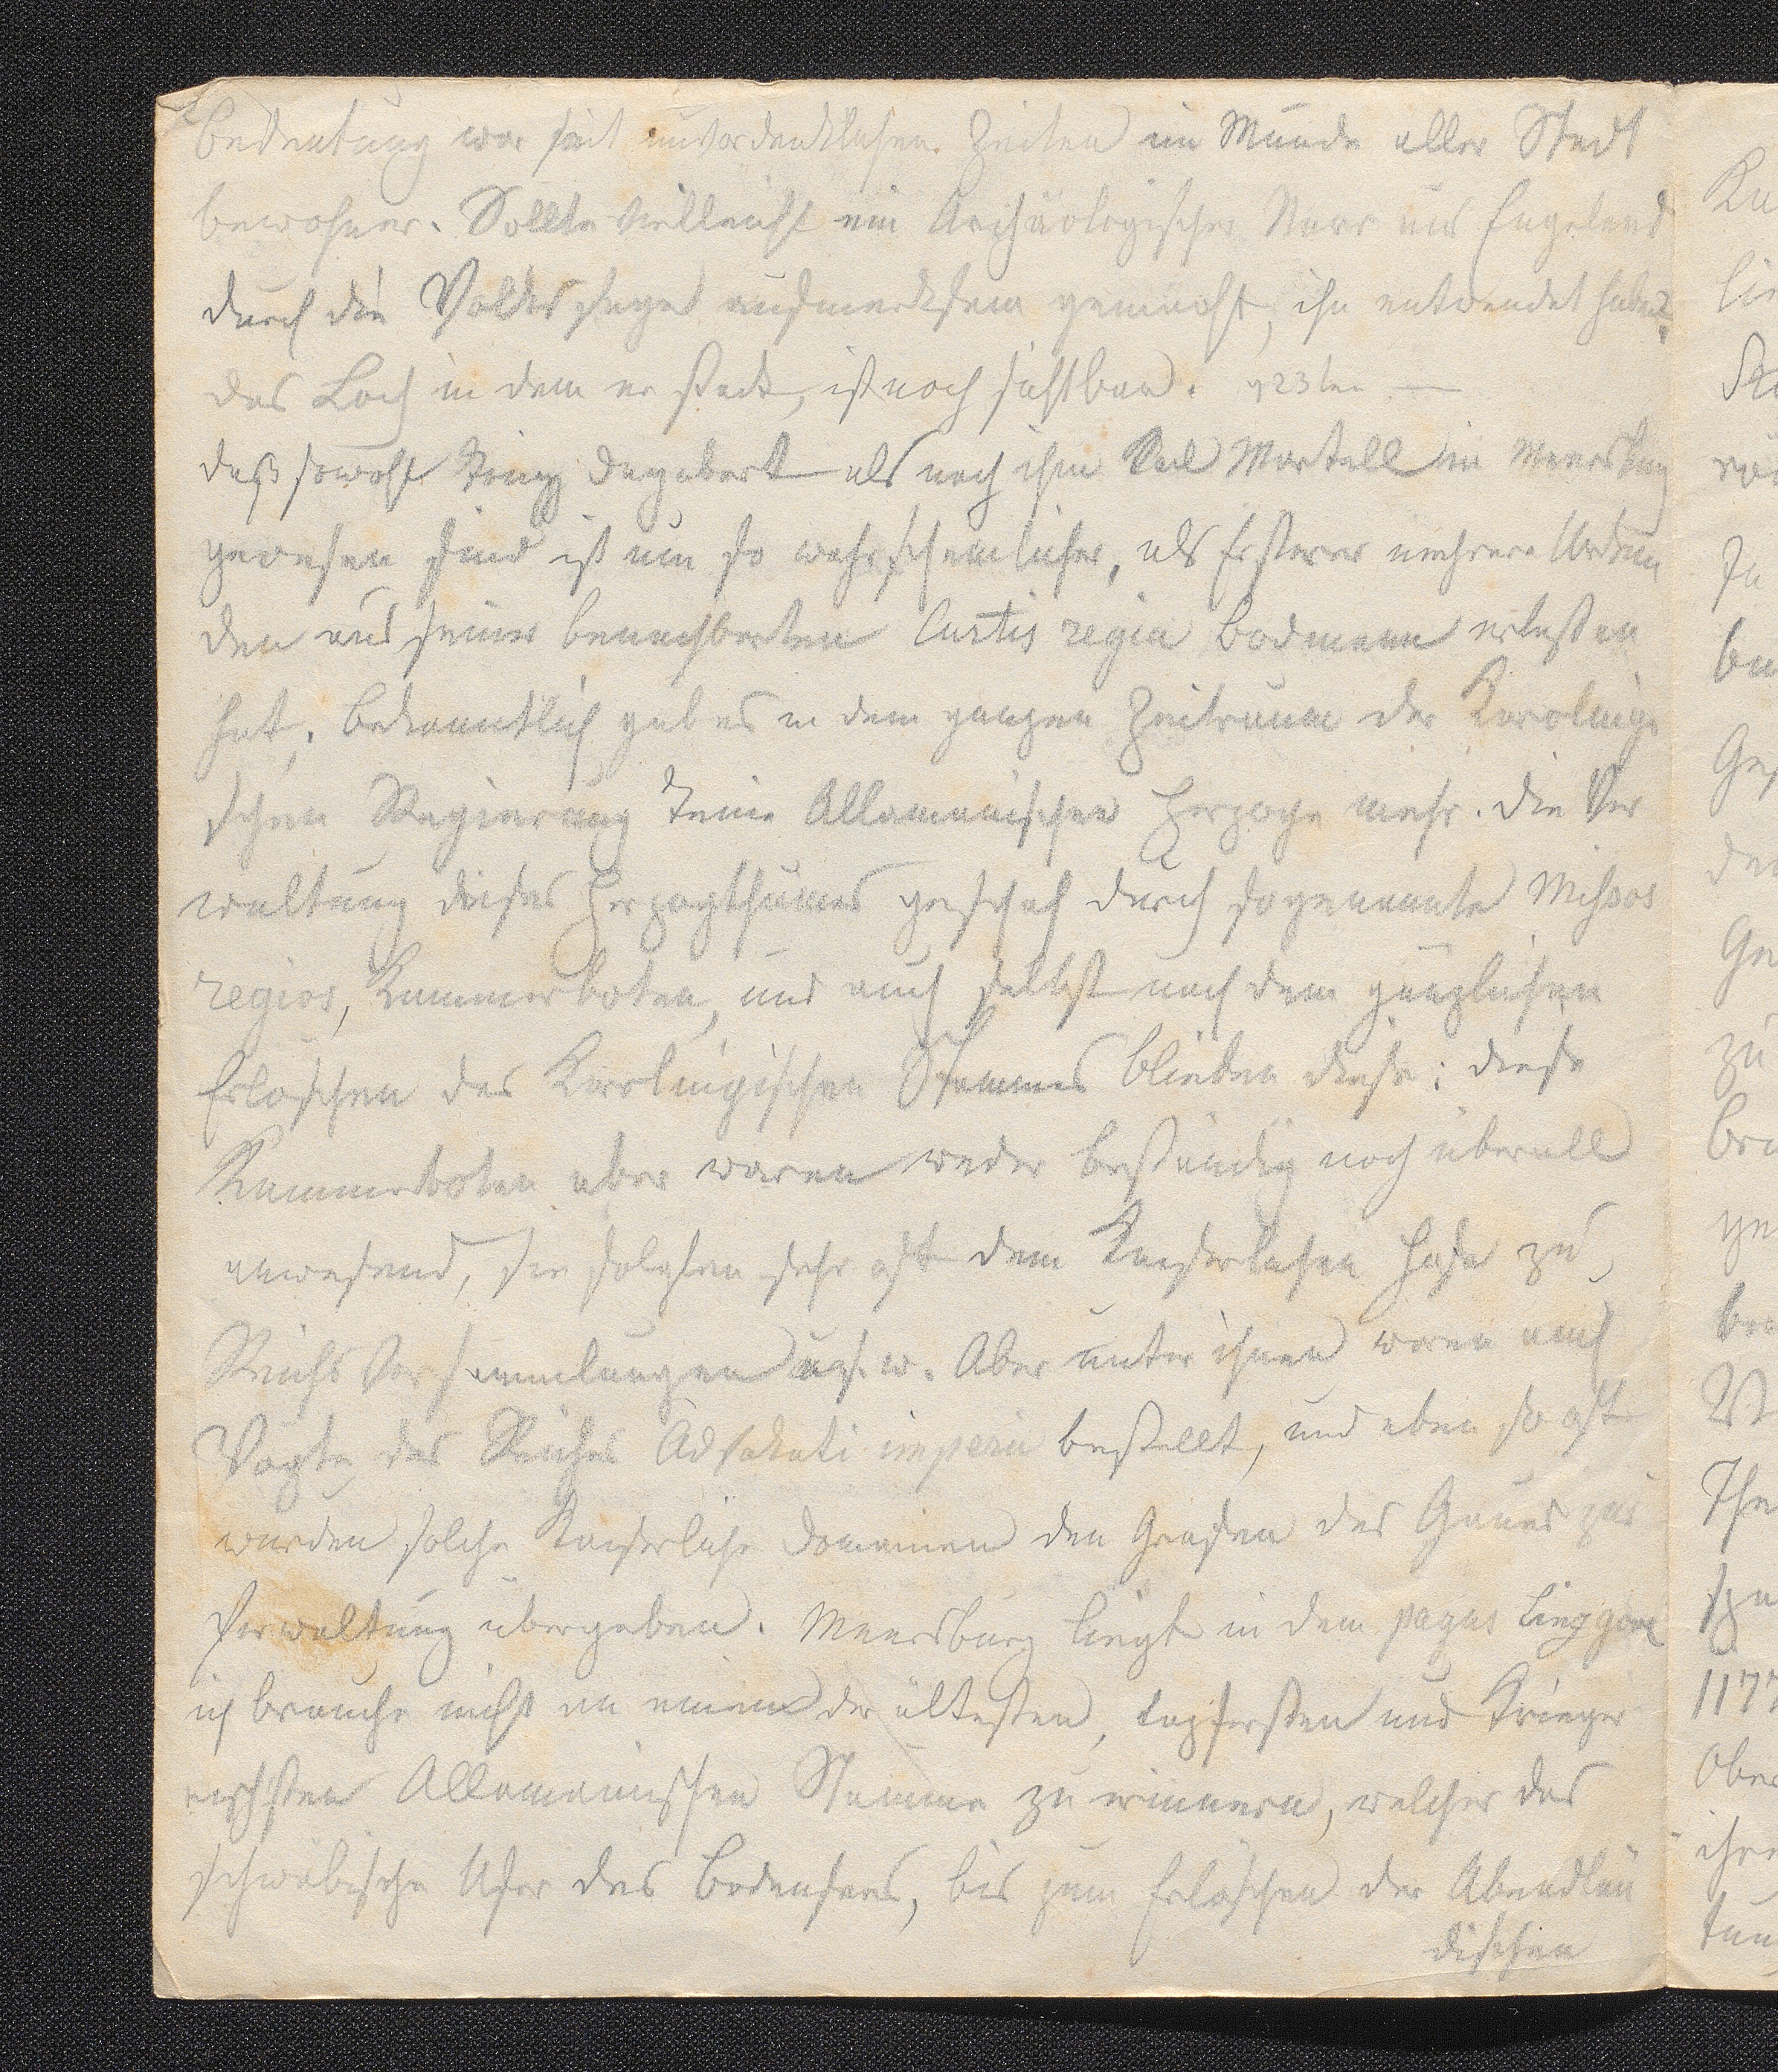 Bedeutung war seit unvordenklichen Zeiten im Munde aller Stadt
bewohner. Sollte vielleicht ein Archäologischer Narr aus Engeland
durch die Volkssage aufmerksam gemacht, ihn entwendet haben?
das Loch in dem er stack, ist noch sichtbar.
daß sowohl König Dagobert als nach ihm Karl Martell in Meersburg
gewesen sind ist um so wahrscheinlicher, als Ersterer mehrere Urkun
den aus seiner benachbarten Curtis regia Bodmann erlassen
hat. Bekanntlich gab es in dem ganzen Zeitraum der Karolingi
schen Regierung keine Allamanischen Herzoge mehr. Die Ver
waltung dieses Herzogthumes geschah durch sogenannte Missos
regios, Kammerboten, und auch selbst nach dem gänzlichen
Erlöschen des Karolingischen Stammes blieben diese: diese
Kammerboten aber waren weder beständig noch überall
anwesend, sie folgten sehr oft dem Kaiserlichen Hofe zu
Reichs Versammlungen u.s.w. Aber unter ihnen waren auch
Vögte des Reiches Advokati imperii bestellt, und eben so oft
wurden solche Kaiserliche Domainen den Grafen des Gaues zur
Verwaltung übergeben. Meersburg liegt in dem pagus Linzgove
ich brauche nicht an einen der ältesten, tapfersten und Kriege
rischsten Allamanischen Stamme zu erinnern, welcher das
schwäbische Ufer des Bodensees, bis zum Erlöschen der Abendlän
dischen